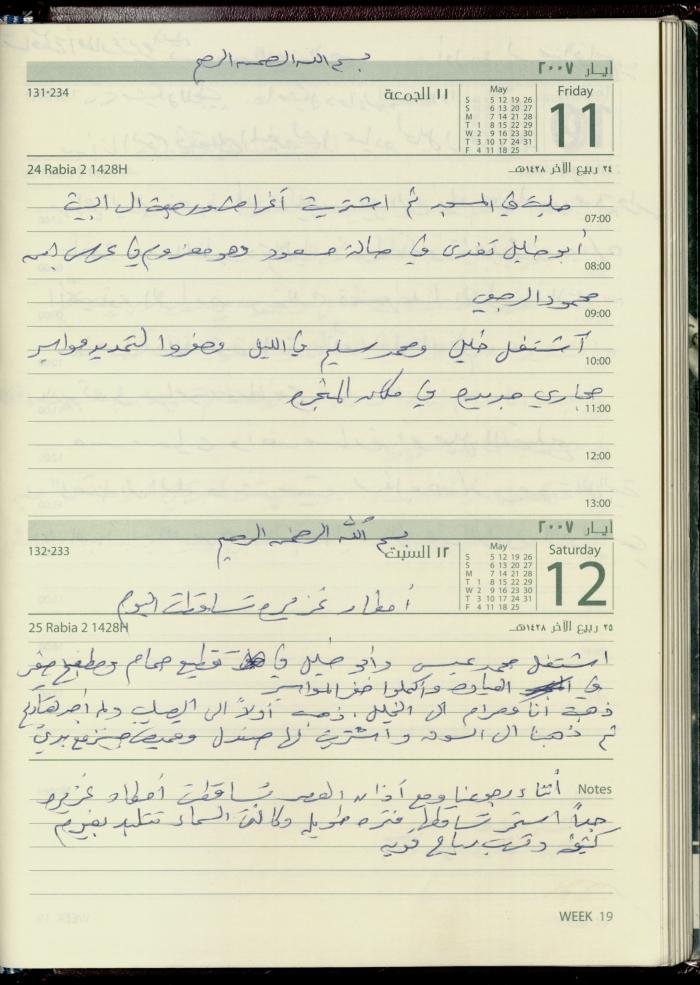 بسم الله الرحمن الرحيم
أيـار ٢٠٠٧
131-234
١١ الجمعة
May
S 5 12 19 26
S 6 13 20 27
M 7 14 21 28
T 1 8 15 22 29
W 2 9 16 23 30
T 3 10 17 24 31
F 4 11 18 25
Friday
11
24 Rabia 2 1428H
٢٤ ربيع الآخر ١٤٢٨هـ
صليت في المسجد ثم اشتريت أغراض ورجعت الى البيت
07:00
أبو خليل تغدى في صالة مسعود وهو معزوم في عرس ابن
08:00
محمود الرجبي
09:00
أشتغل خليل ومحمد سليم في الليل وحفروا لتمديد مواسير
10:00
مجاري جديده في مكان المنجره
11:00
12:00
13:00
أيـار ٢٠٠٧
بسم الله الرحمن الرحيم
132-233
١٢ السبت
May
S 5 12 19 26
S 6 13 20 27
M 7 14 21 28
T 1 8 15 22 29
W 2 9 16 23 30
T 3 10 17 24 31
F 4 11 18 25
Saturday
12
أمطار غزيره تساقطت اليوم
25 Rabia 2 1428H
٢٥ ربيع الآخر ١٤٢٨هـ
اشتغل محمد عيسى وابو خليل في قطيع حمام ومطبخ صغير
في العياده واكملوا حفر المواسير
ذهبت أنا ومرام الى الخليل. ذهبت أولاً الى ولم اجد
ثم ذهبنا الى السوق واشتريت لها صندل وقميص
Notes
أثناء رجوعنا ومع آذان العصر تساقطت أمطار غزيره
جداً استمر تساقطها فتره طويله وكانت السماء تتلبد بغيوم
كثيفه وتهب رياح قويه
WEEK 19